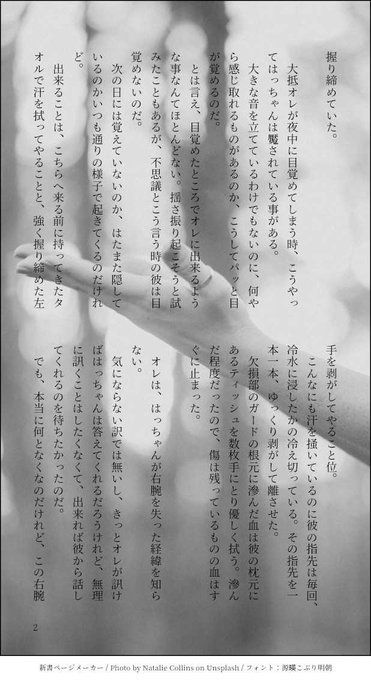 握り締めていた。
　大抵オレが夜中に目覚めてしまう時、こうやっ
てはっちゃんは魘されている事がある。
　大きな音を立てているわけでもないのに、何や
ら感じ取れるものがあるのか、こうしてパッと目
が覚めるのだ。
　とは言え、目覚めたところでオレに出来るよう
な事なんてほとんどない。揺さ振り起こそうと試
みたこともあるが、不思議とこう言う時の彼は目
覚めないのだ。
　次の日には覚えていないのか、はたまた隠して
いるのかいつも通りの様子で起きてくるのだけれ
ど。
　出来ることは、こちらへ来る前に持ってきたタ
オルで汗を拭ってやることと、強く握り締めた左
手を剥がしてやること位。
　こんなにも汗を掻いているのに彼の指先は毎回、
冷水に浸したかの冷え切っている。その指先を一
本一本、ゆっくり剥がして離させた。
　欠損部のガードの根元に滲んだ血は彼の枕元に
あるティッシュを数枚手にとり優しく拭う。滲ん
だ程度だったので、傷は残っているものの血はす
ぐに止まった。
　オレは、はっちゃんが右腕を失った経緯を知ら
ない。
　気にならない訳では無いし、きっとオレが訊け
ばはっちゃんは答えてくれるだろうけれど、無理
に訊くことはしたくなくて、出来れば彼から話し
てくれるのを待ちたかったのだ。
　でも、本当に何としなくなのだけれど、この右腕
2
新書ページメーカー / Photo by Natalie Collins on Unsplash / フォント：源暎こぶり明朝